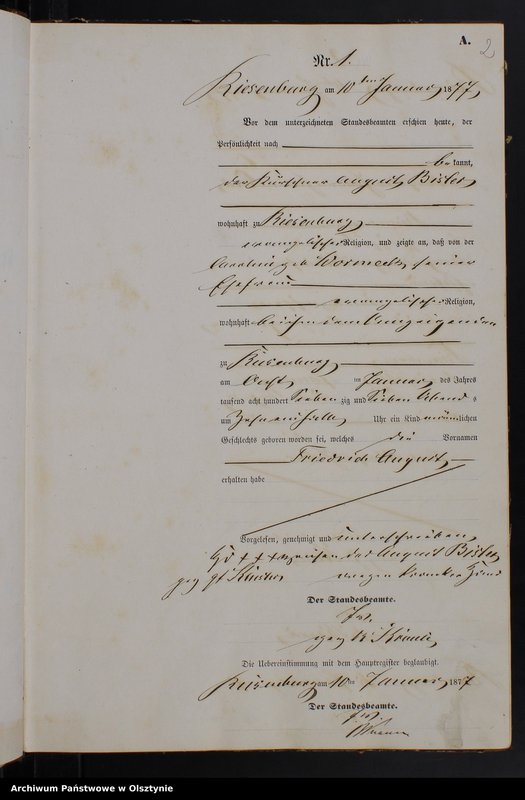 A.
2
Nr. 1.
Riesenburg am 10ten Januar 1877
Vor dem unterzeichneten Standesbeamten erschien heute, der
Persönlichkeit nach
bekannt,
der Kürschner August Bisler
wohnhaft zu Riesenburg
evangelischer Religion, und zeigte an, daß von der
Caroline geb Wormeck, seiner
Ehefrau
evangelischer Religion,
wohnhaft bei ihm dem Anzeigenden
zu Riesenburg
am Acht ten Januar des Jahres
tausend acht hundert Sieben zig und Sieben Abends
um Zehn einhalb Uhr ein Kind männlichen
Geschlechts geboren worden sei, welches die Vornamen
Friedrich August
erhalten habe
Vorgelesen, genehmigt und unterschrieben
+ + + des August Bisler
wegen kranker Hand
Der Standesbeamte.
gez
Die Uebereinstimmung mit dem Hauptregister beglaubigt.
Riesenburg am 10ten Januar 1877
Der Standesbeamte.
Archiwum Państwowe w Olsztynie